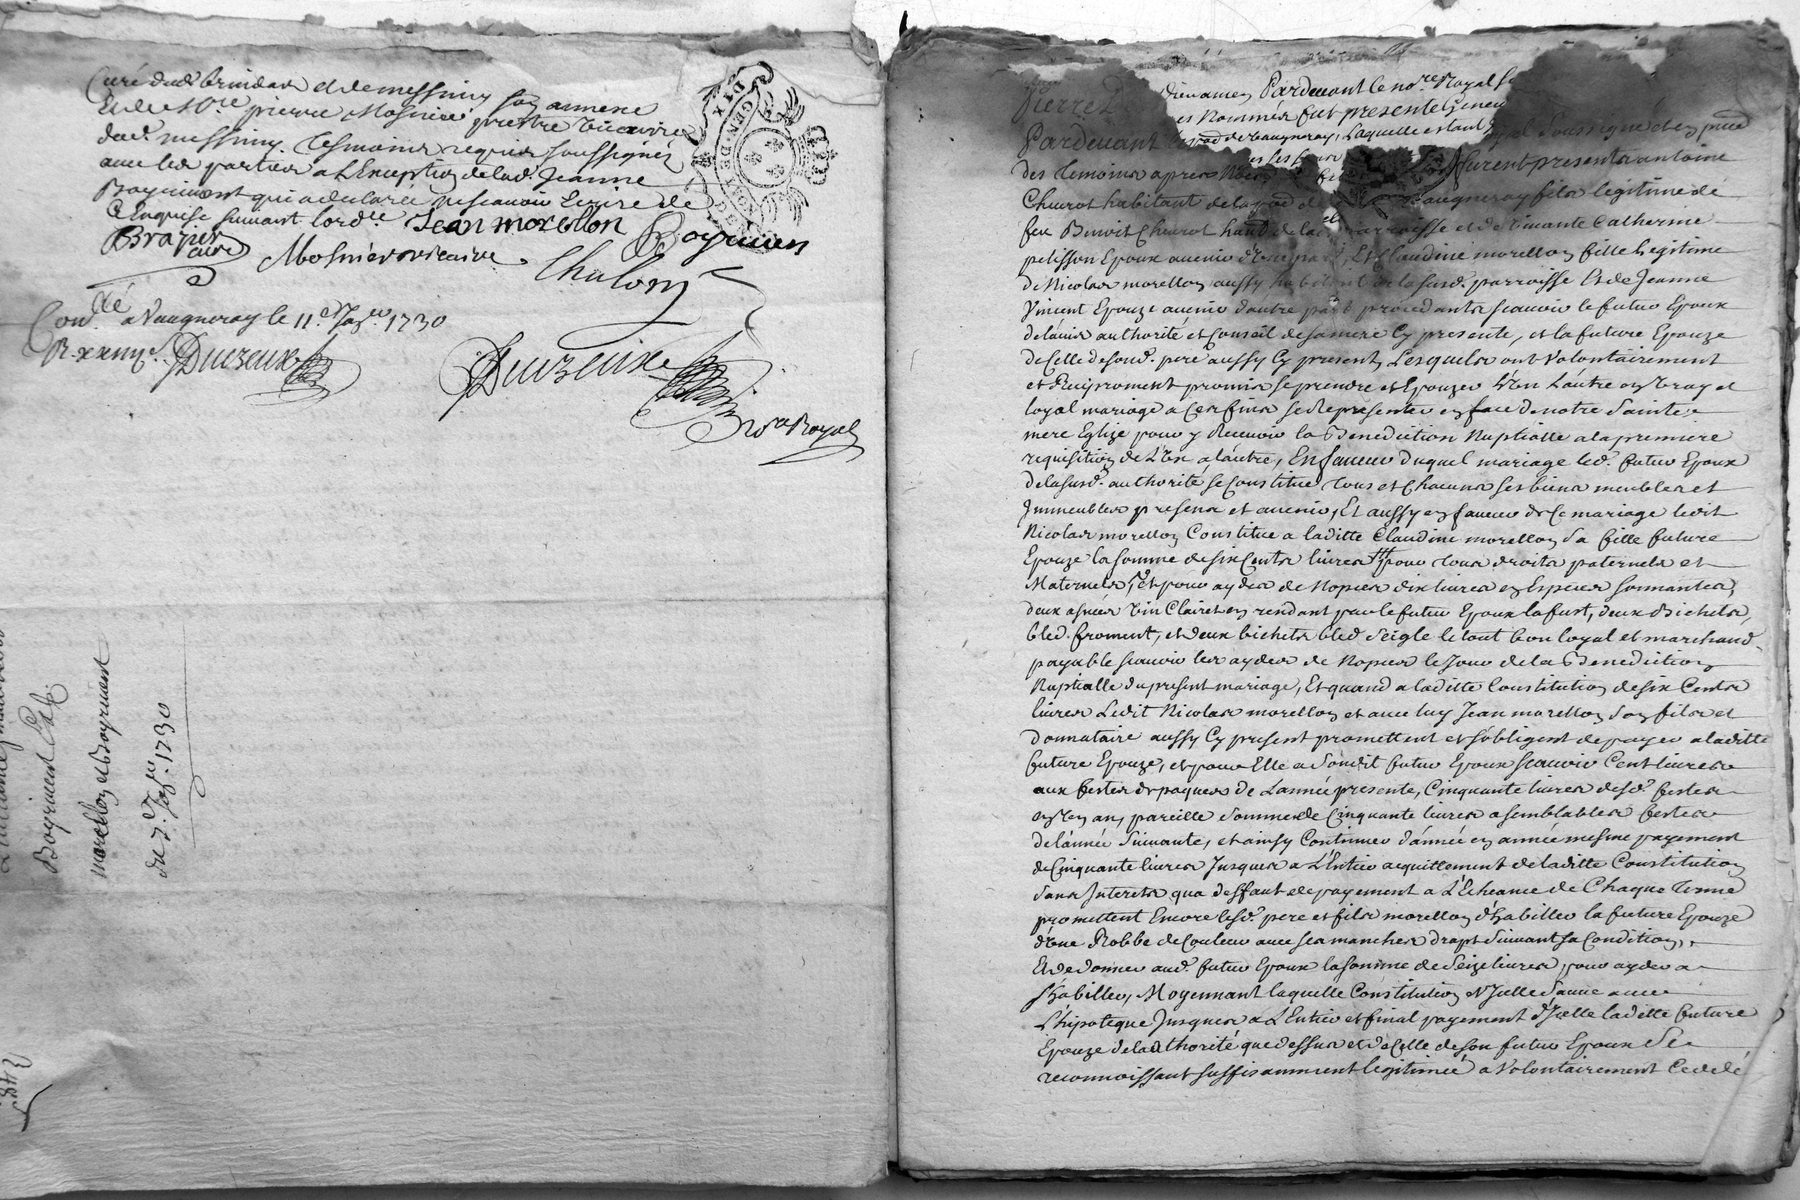 Curé dud. brindas et de messimy son annexe
Et de Mre pierre Mosnier prestre vicaire
dud. messimy. Tesmoins requis soussignés
avec les parties a L'Exception de lad. Jeanne
Boyriment qui a declaré ne scavoir Ecrire de
Ce Enquise suivant lordce Jean morellon Boyrimen
Brapier curé Mosnier vicaire Chalom
DIX
Conllé a Vaugneray le 11e Janer 1730
R. Duzeux Duzeux
Nore Royal
Boyriment
morellon et Boyriment
du 7e Janer 1730
Pardevant le nore Royal
nommés fut presente
Pierre
Pardevant de Vaugneray, Laquelle estant Soussigné et en pnce
des temoins apres Nommés furent presents antoine
Chuzot habitant de la psse de Vaugneray fils legitime de
feu Benoit Chuzot hant de lad. parroisse et de vivante Catherine
pelisson Epoux avenir d'Une part, Et Claudine morellon fille Legitime
de Nicolas morellon aussy habitant de la susd. parroisse Et de Jeanne
Vincent Epouze avenir d'autre part procedants scavoir le futur Epoux
de lavis authorité et Conseil de sa mere Cy presente, et la future Epouze
de Celle de sond. pere aussy Cy present, Lesquels ont Volontairement
et Reciproment promis se prendre et Epouzer L'Un L'autre en Vray et
loyal mariage a Ces fins se Representer en face de notre Sainte
mere Eglize pour y Recevoir la Benediction Nuptialle a la premiere
requisition de L'Un a l'autre, En faveur duquel mariage led. futur Epoux
de la susd. authorité se Constitue tous et Chacuns ses biens meubles et
Immeubles presens et avenir, Et aussy en faveur de Ce mariage ledit
Nicolas morellon Constitue a laditte Claudine morellon Sa fille future
Epouze la somme de six Cents livres pour tous droits paternels et
Maternels, et pour aydes de Nopces dix livres en Especes sonnantes,
deux asnees Vin Clairet en rendant par le futur Epoux la fust, deux Bichets
bled froment, et deux bichets bled Seigle le tout bon loyal et marchand
payable scavoir les aydes de Nopces le Jour de la Benediction
Nuptialle du present mariage, Et quand a laditte Constitution de six Cents
livres Ledit Nicolas morellon et avec luy Jean morellon son fils et
donnataire aussy Cy present promettent et s'obligent de payer a laditte
future Epouze, et pour Elle a Sondit futur Epoux scavoir Cent livres
aux festes de paques de L'année presente, Cinquante livres desd. festes
en Un an, pareille Somme de Cinquante livres a semblables festes
de l'année Suivante, et ainsy Continuer d'année en année mesme payement
de Cinquante livres Jusques a L'Entier acquittement de laditte Constitution
Sans Interets qua deffaut de payement a L'Echeance de Chaque terme
promettent Encore lesd. pere et fils morellon d'habiller la future Epouze
d'Une Robbe de Couleur avec ses manches drapt Suivant sa Condition,
Et de donner aud. futur Epoux la somme de Seize livres pour ayder a
s'habiller, Moyennant laquelle Constitution et Jcelle sauve avec
L'hipoteque Jusques a L'Entier et final payement d'Jcelle ladette future
Epouze de l'authorité que dessus et de Celle de son futur Epoux Se
reconnoissant suffisamment legitimée a Volontairement Cedé